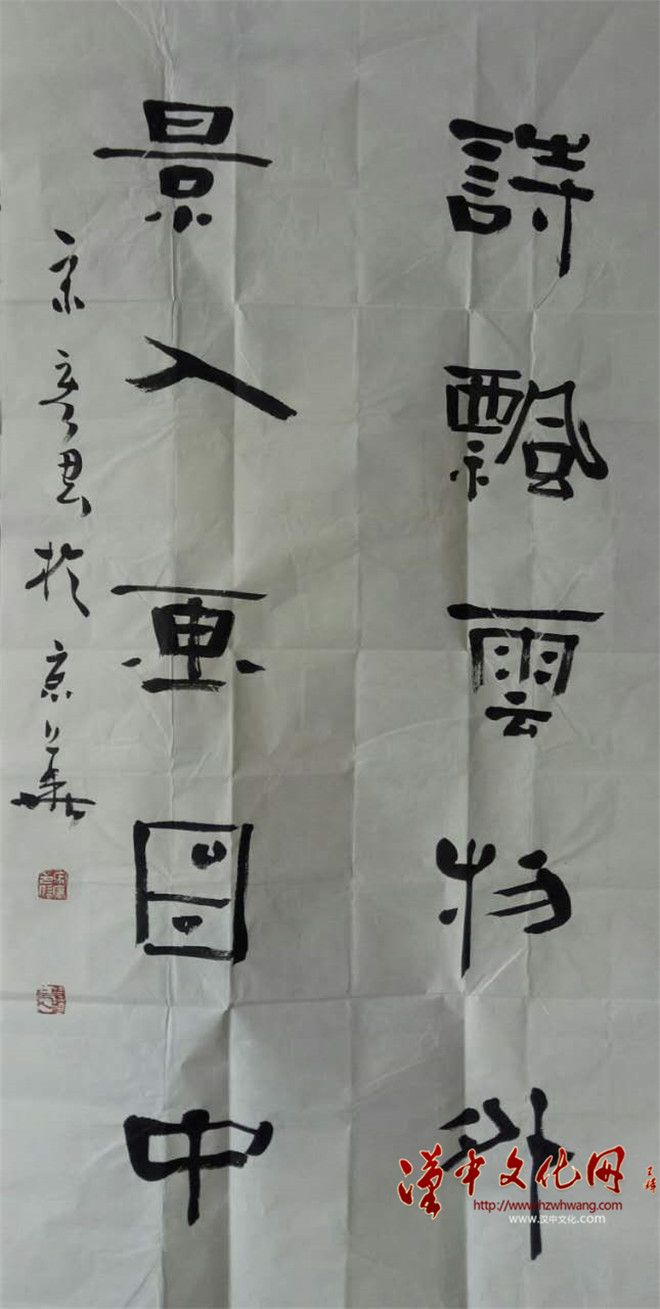 詩飄雲物外
景入画图中
於京华
漢中文化网
http://www.hzwhwang.com
www.汉中文化.com